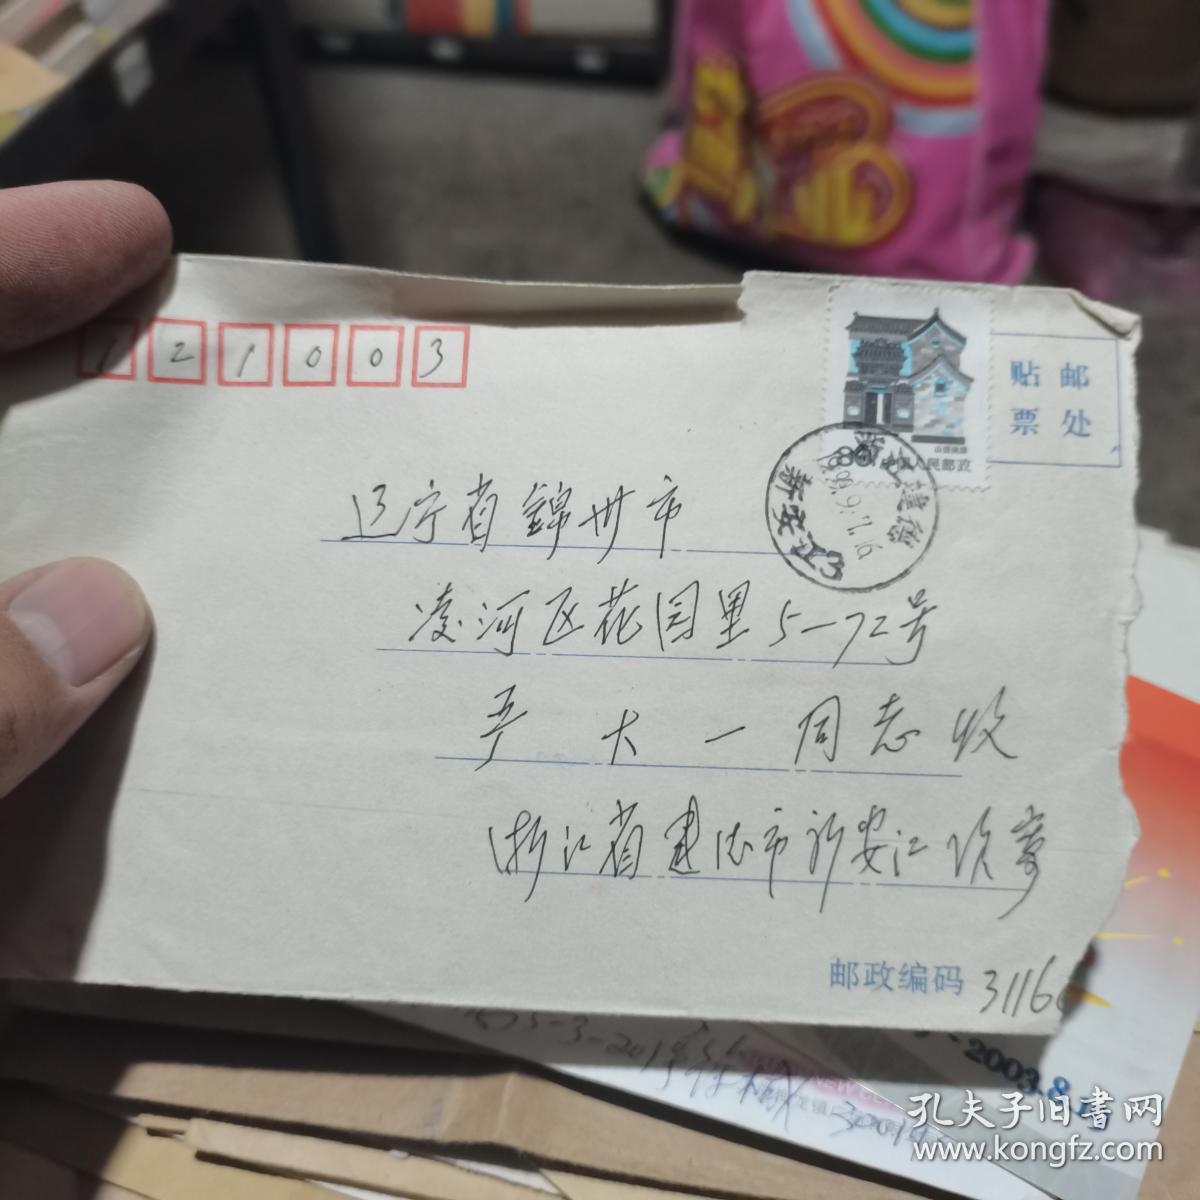 121003
贴邮
票处
山西民居
80 中国人民邮政
浙江建德
新安江
辽宁省錦州市
凌河区花园里5-72号
严大一同志收
浙江省建德市新安江
邮政编码 3116
2003.8
孔夫子旧书网
www.kongfz.com